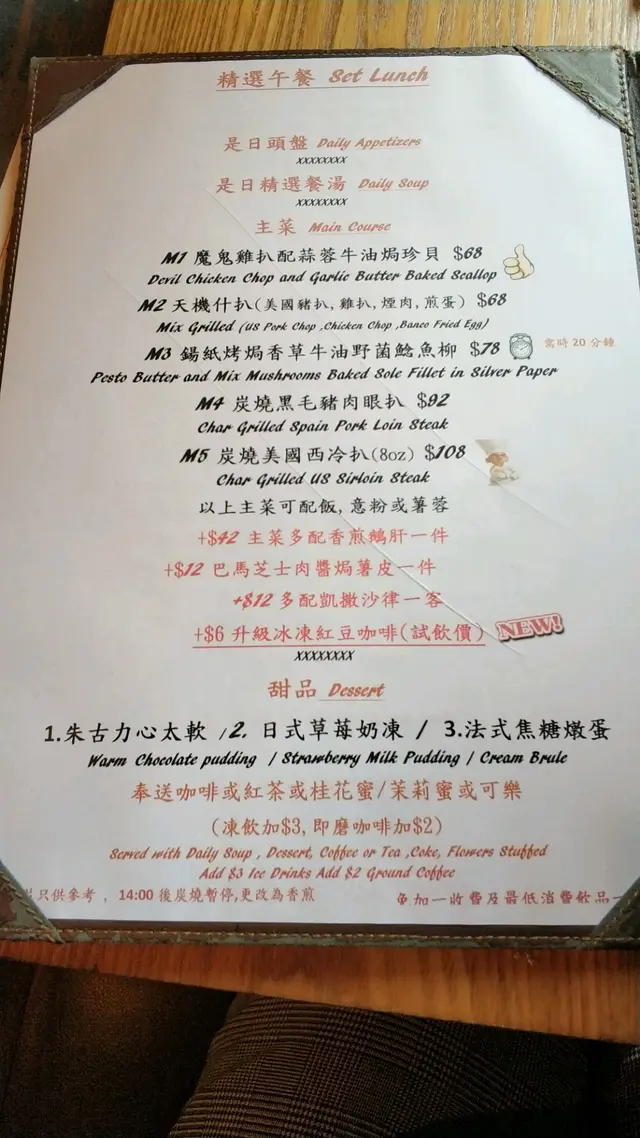 精選午餐 Set Lunch
是日頭盤 Daily Appetizers
xxxxxxxx
是日精選餐湯 Daily Soup
xxxxxxxx
主菜 Main Course
M1 魔鬼雞扒配蒜蓉牛油焗珍貝 $68
Devil Chicken Chop and Garlic Butter Baked Scallop
M2 天機什扒(美國豬扒, 雞扒, 煙肉, 煎蛋) $68
Mix Grilled (US Pork Chop ,Chicken Chop ,Banco Fried Egg)
M3 錫紙烤焗香草牛油野菌鯰魚柳 $78 需時 20 分鐘
Pesto Butter and Mix Mushrooms Baked Sole Fillet in Silver Paper
M4 炭燒黑毛豬肉眼扒 $92
Char Grilled Spain Pork Loin Steak
M5 炭燒美國西冷扒(8oz) $108
Char Grilled US Sirloin Steak
以上主菜可配飯, 意粉或薯蓉
+$42 主菜多配香煎鵝肝一件
+$12 巴馬芝士肉醬焗薯皮一件
+$12 多配凱撒沙律一客
+$6 升級冰凍紅豆咖啡(試飲價) NEW!
XXXXXXXX
甜品 Dessert
1.朱古力心太軟 /2. 日式草莓奶凍 / 3.法式焦糖燉蛋
Warm Chocolate pudding / Strawberry Milk Pudding / Cream Brule
奉送咖啡或紅茶或桂花蜜/茉莉蜜或可樂
(凍飲加$3, 即磨咖啡加$2)
Served with Daily Soup , Dessert, Coffee or Tea ,Coke, Flowers Stuffed
Add $3 Ice Drinks Add $2 Ground Coffee
只供參考 , 14:00 後炭燒暫停,更改為香煎 免加一收費及最低消費飲品一